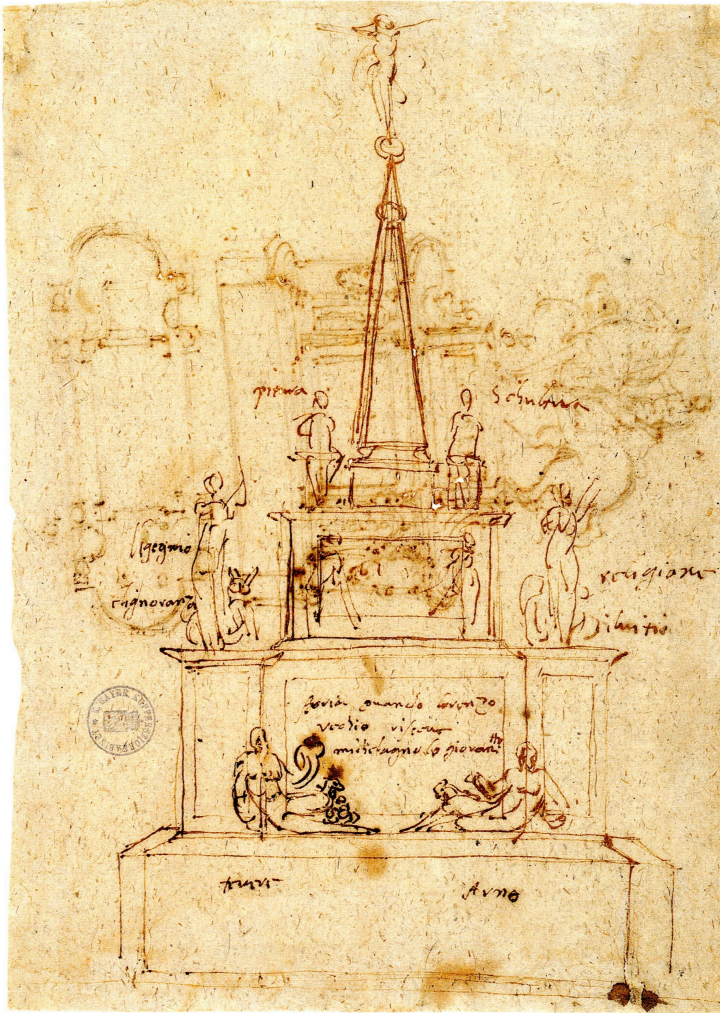 pictura
Schultura
Igegnio
e ignoranza
religione
storia quando lorenzo
vechio
michelagnolo giovan
tto
tevere
Arno